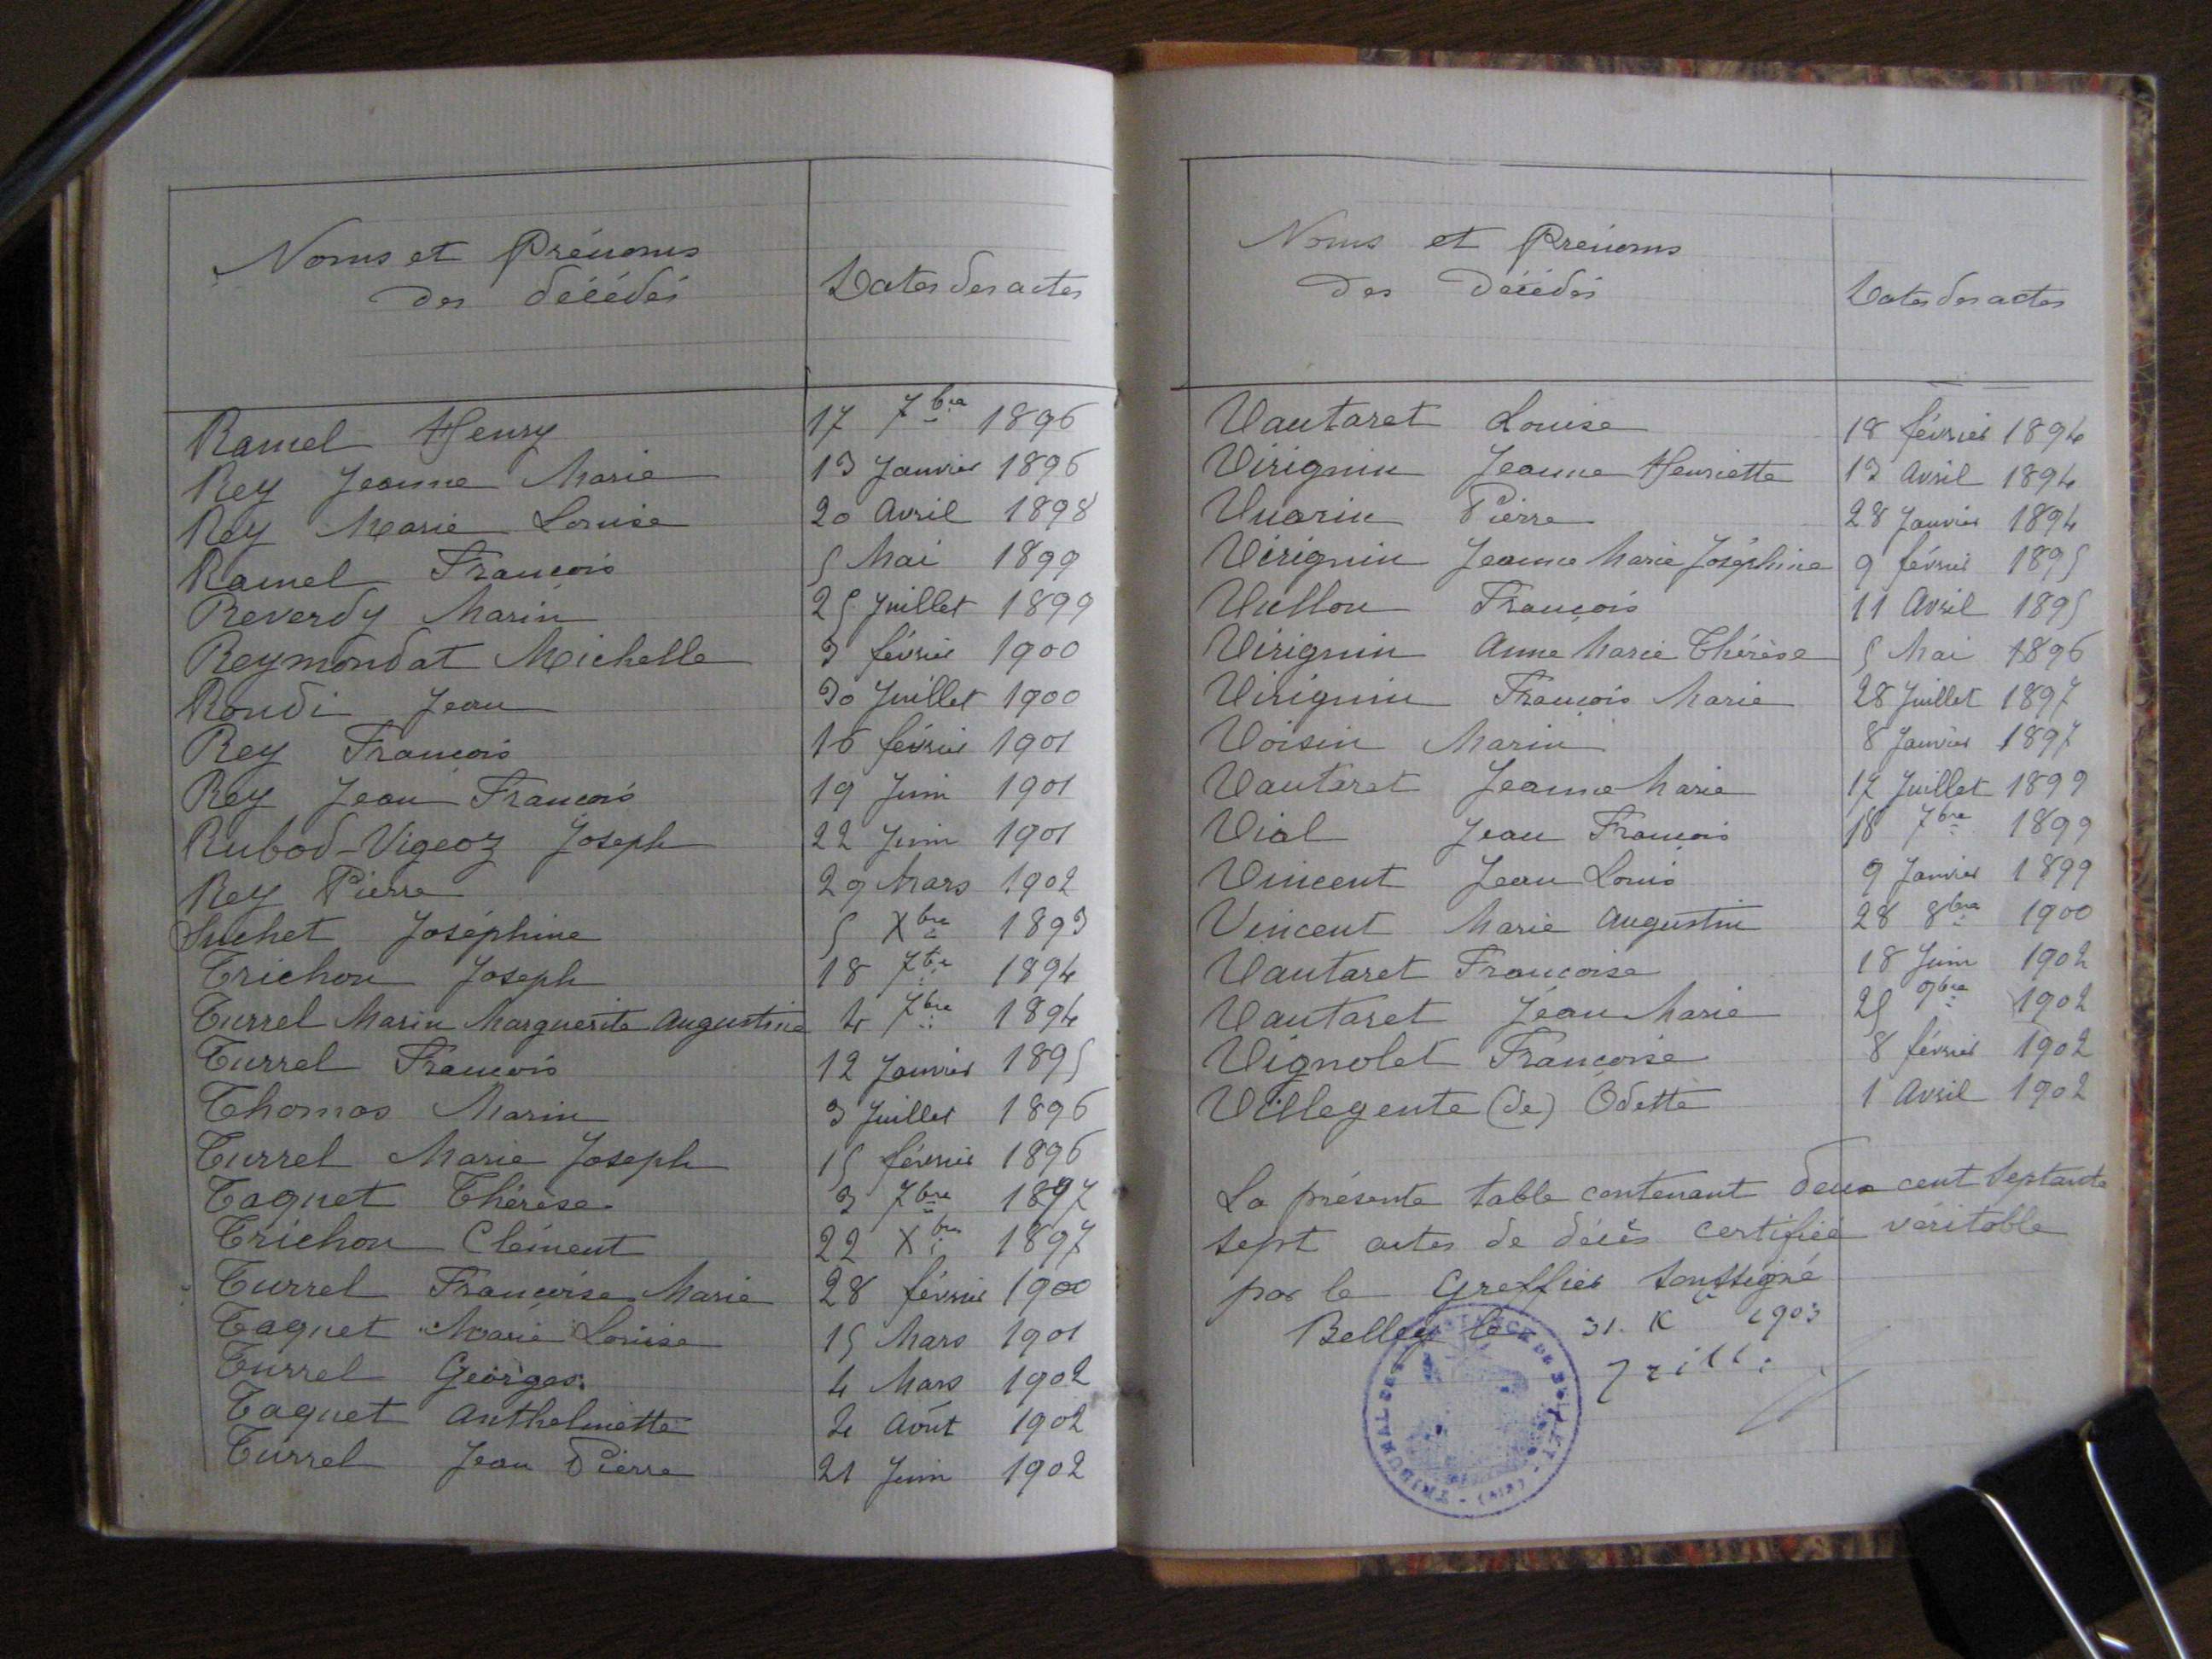 Noms et Prénoms
des décédés
Dates des actes
Ramel Henry 17 7bre 1896
Rey Jeanne Marie 13 Janvier 1896
Rey Marie Louise 20 Avril 1898
Ramel François 5 Mai 1899
Reverdy Marin 25 Juillet 1899
Reymondat Michelle 3 février 1900
Rondi Jean 30 Juillet 1900
Rey François 16 février 1901
Rey Jean François 19 Juin 1901
Rubod-Vigeoz Joseph 22 Juin 1901
Rey Pierre 29 Mars 1902
Suchet Joséphine 5 Xbre 1893
Trichon Joseph 18 7bre 1894
Turrel Marin Marguerite Augustine 4 7bre 1894
Turrel François 12 Janvier 1895
Thomas Marin 3 Juillet 1896
Turrel Marie Joseph 15 février 1896
Taquet Thérèse 3 7bre 1897
Trichon Clément 22 Xbre 1897
Turrel Françoise Marie 28 février 1900
Taquet Marie Louise 15 Mars 1901
Turrel Georges 4 Mars 1902
Taquet Anthelmette 4 Août 1902
Turrel Jean Pierre 21 Juin 1902
Noms et Prénoms
Des Décédés
Dates des actes
Vautaret Louise 18 février 1894
Virignin Jeanne Henriette 13 Avril 1894
Vuarin Pierre 28 Janvier 1894
Virignin Jeanne Marie Joséphine 9 février 1895
Vullon François 11 Avril 1895
Virignin Anne Marie Thérèse 5 Mai 1896
Virignin François Marie 28 Juillet 1897
Voisin Marin 8 Janvier 1897
Vautaret Jeanne Marie 17 Juillet 1899
Vial Jean François 18 7bre 1899
Vincent Jean Louis 9 Janvier 1899
Vincent Marie Augustin 28 8bre 1900
Vautaret Françoise 18 Juin 1902
Vautaret Jean Marie 25 9bre 1902
Vignolet Françoise 8 février 1902
Villegente (de) Odette 1 Avril 1902
La présente table contenant deux cent septante
sept actes de décès certifiée véritable
par le Greffier soussigné
Belley le 31. 1903
TRIBUNAL DE INSTANCE DE BELLEY (AIN)